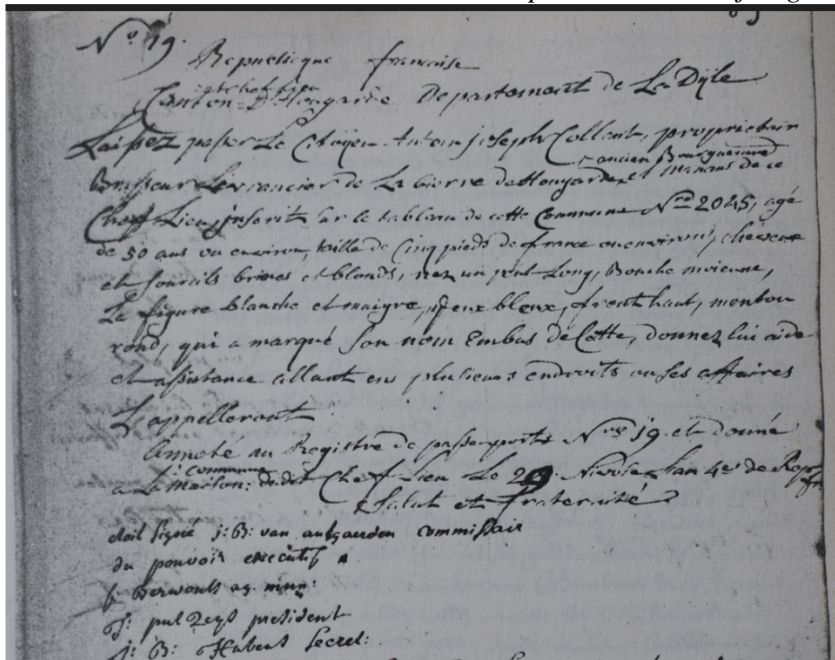 N.º 19.
Republique francaise
chef lieu
Canton D'Hougarde Departement de La Dijle
Laissez passer Le Citoyen Antoin joseph Collent, proprietair
ancien Bourguemre
Brasseur Livrancier de La bierre de Hougarde, et manans de ce
Chef Lieu, inscrit sur le tableau de cette Commune Nro 2045, agé
de 50 ans ou environ, taille de Cinq pieds de france ou environ, cheveux
et sourcils brines et blonds, nez un peut Long, Bouche moienne,
La figure blanche et maigre, yeux bleux, front haut, menton
rond, qui a marqué son nom Embas de Cette, donnez lui aide
et assistance allant ens plusieurs endroits ou ses affaires
L'appelleront
Annoté au Registre de passeports Nro 19. et donné
Commune
a La Maison: dudit Chef Lieu Le Nivose Lan 4e de Rep
fr
Salut et fraternité
etait signé j: B: van autgaerden Commissair
du pouvoir executif
ag
president
j: B: Hubert Secret: